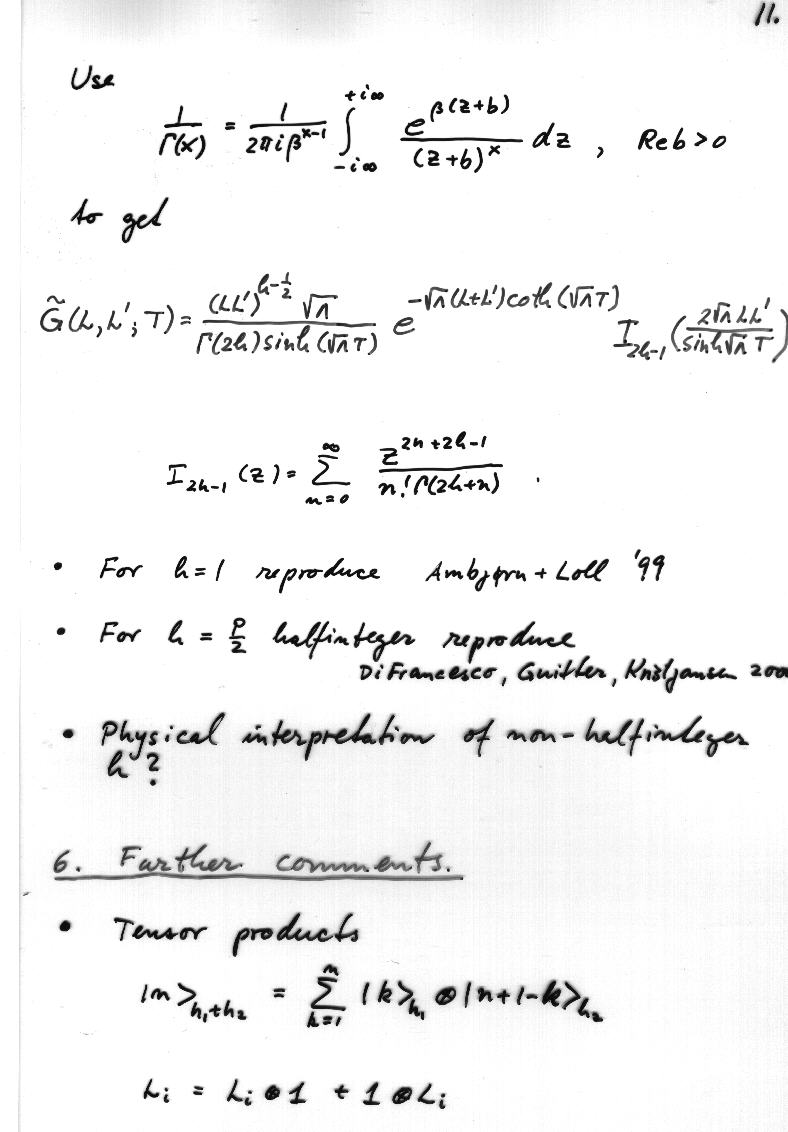 11.
Use
1/Γ(x) = 1/(2πi β^{x-1}) ∫_{-i∞}^{+i∞} e^{β(z+b)}/(z+b)^x dz , Re b > 0
to get
G̃(L,L';T) = (LL')^{h-1/2} √Λ / Γ(2h) sinh(√Λ T) e^{-√Λ(L+L')coth(√Λ T)} I_{2h-1}(2√Λ LL'/sinh√Λ T)
I_{2h-1}(z) = Σ_{n=0}^{∞} z^{2n+2h-1}/n! Γ(2h+n) .
• For h=1 reproduce Ambjørn + Loll '99
• For h = P/2 halfinteger reproduce
Di Francesco, Guitter, Kristjansen 2000
• Physical interpretation of non-halfinteger
h ?
6. Further comments.
• Tensor products
|n>_{h₁+h₂} = Σ_{k=1}^{n} |k>_{h₁} ⊗ |n+1-k>_{h₂}
L_i = L_i ⊗ 1 + 1 ⊗ L_i